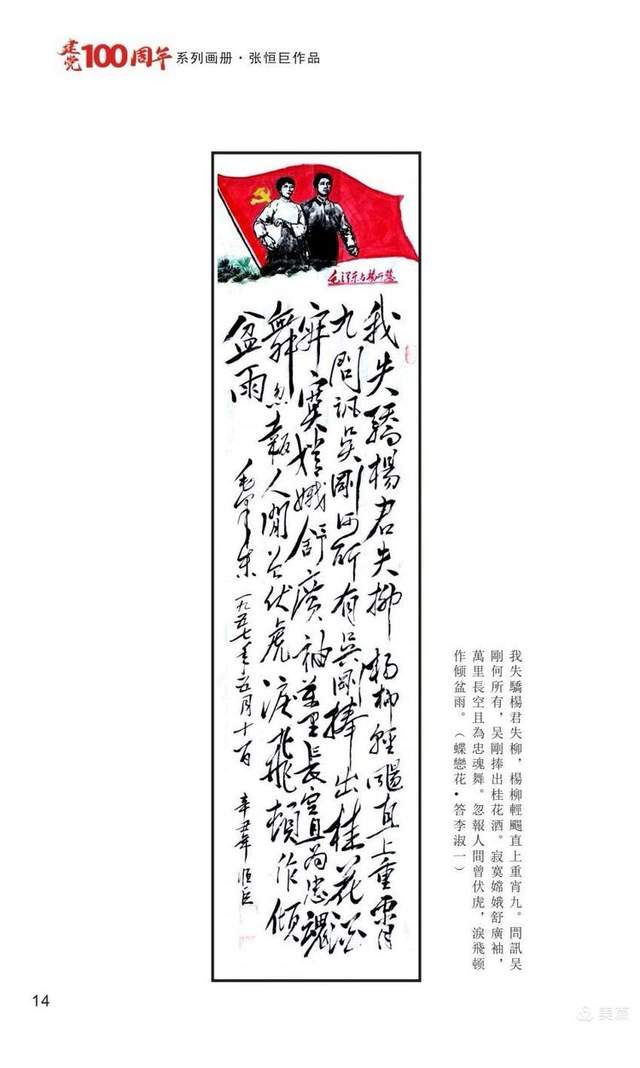 建党100周年系列画册·张恒巨作品
毛泽东与杨开慧
我失驕楊君失柳杨柳輕颺直上重霄
九問訊吳剛何所有吳剛捧出桂花酒
寂寞嫦娥舒廣袖萬里長空且為忠魂
舞忽報人間曾伏虎淚飛頓作傾
盆雨
毛澤東一九五七年五月十一日 辛丑年恒巨
我失驕楊君失柳，楊柳輕颺直上重宵九。問訊吴
剛何所有，吴剛捧出桂花酒。寂寞嫦娥舒廣袖，
萬里長空且為忠魂舞。忽報人間曾伏虎，淚飛頓
作傾盆雨。（蝶戀花•答李淑一）
14
美篇